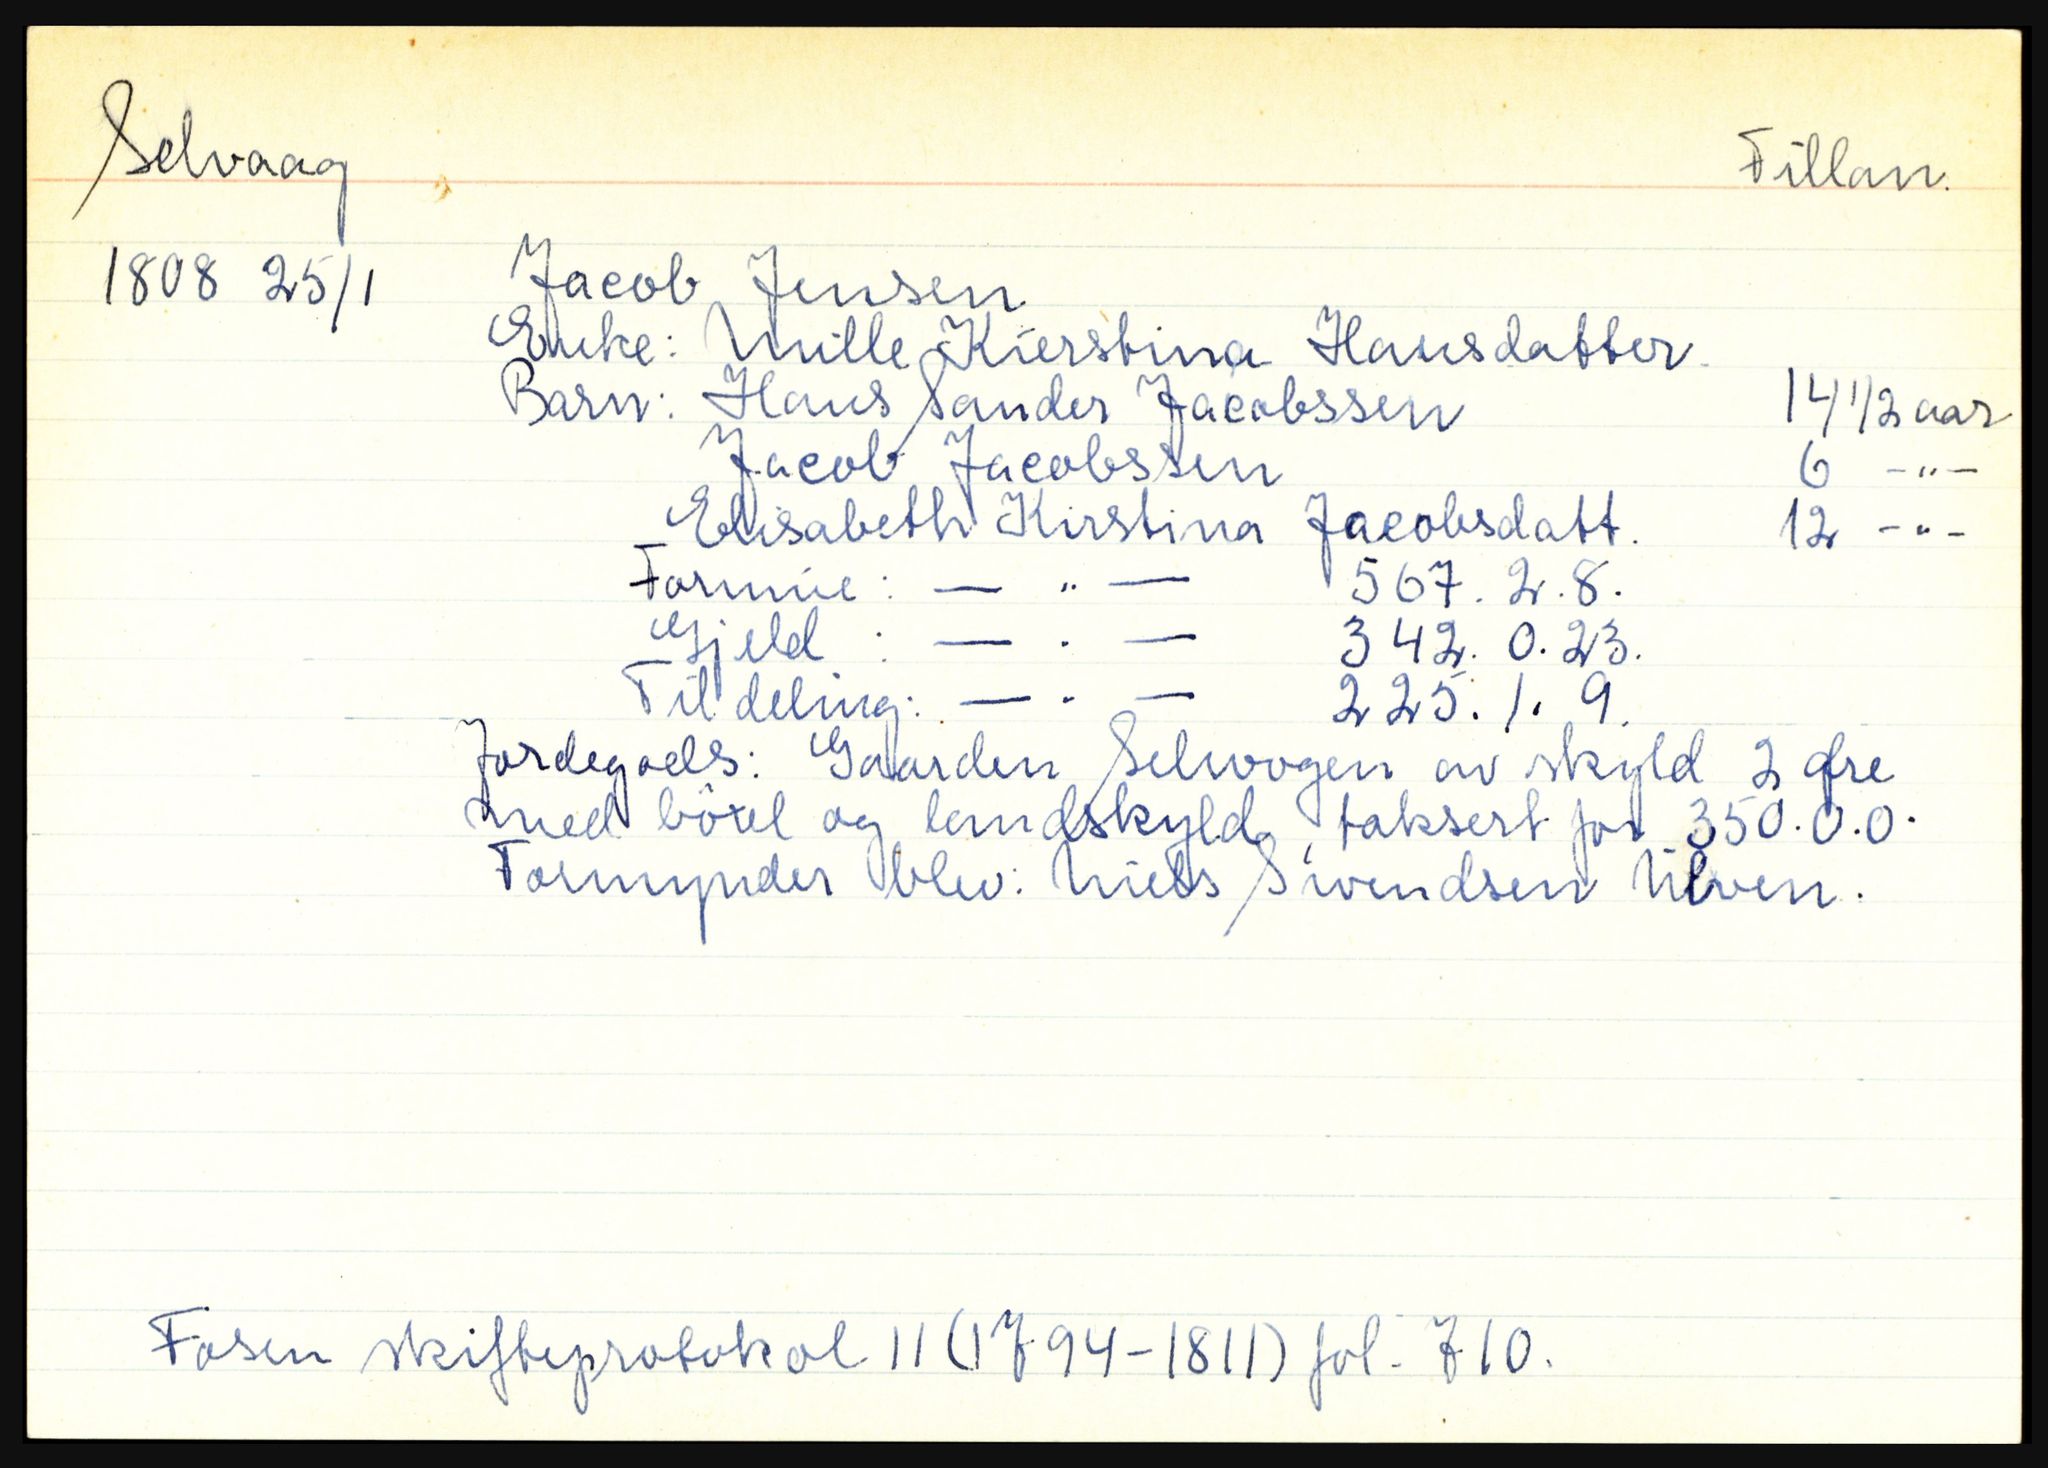 Selvaag Fillan.
1808 25/1 Jacob Jensen
Enke: Mille Kierstina Hansdatter.
Barn: Hans Sander Jacobssen 14 1/2 aar
Jacob Jacobssen 6 -"-
Elisabeth Kirstina Jacobsdatt. 12 -"-
Formue: — " — 567. 2. 8.
Gjeld : — . — 342. 0. 23.
Til deling: — . — 225. 1. 9.
Jordegods: Gaarden Selwogen av skyld 2 øre
med böxel og landskyld, taksert for 350.0.0.
Formynder blev: Niels Svendsen Ulven.
Fosen skifteprotokol 11 (1794-1811) fol. 710.